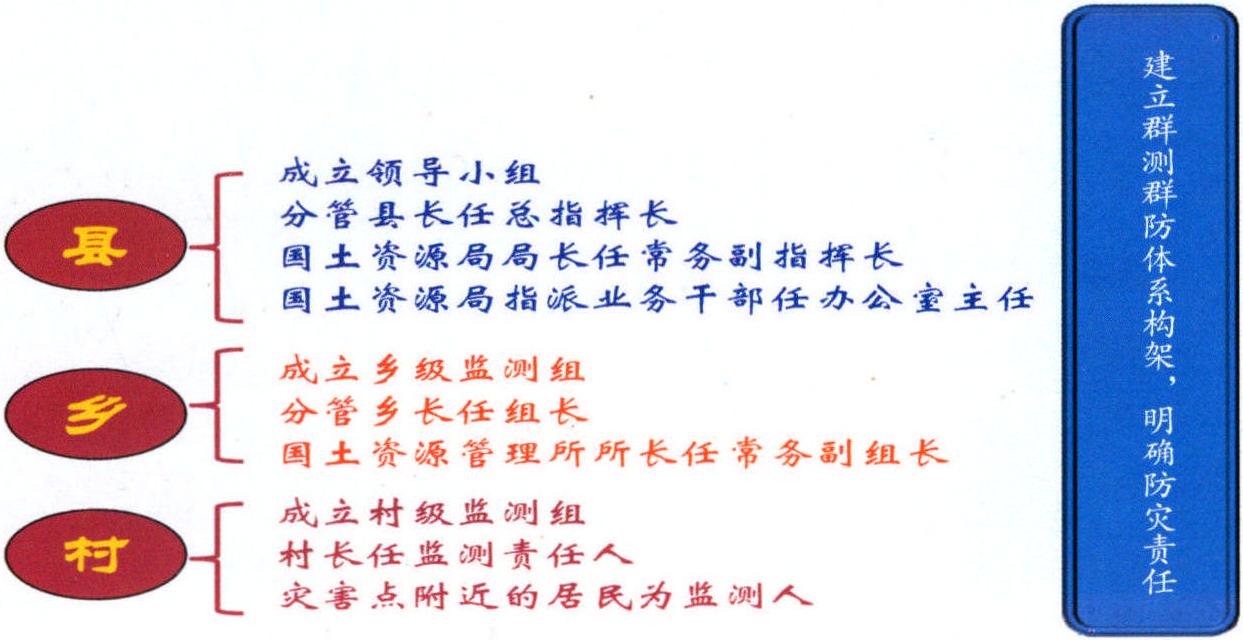 建立群测群防体系构架，明确防灾责任
县
成立领导小组
分管县长任总指挥长
国土资源局局长任常务副指挥长
国土资源局指派业务干部任办公室主任
乡
成立乡级监测组
分管乡长任组长
国土资源管理所所长任常务副组长
村
成立村级监测组
村长任监测责任人
灾害点附近的居民为监测人